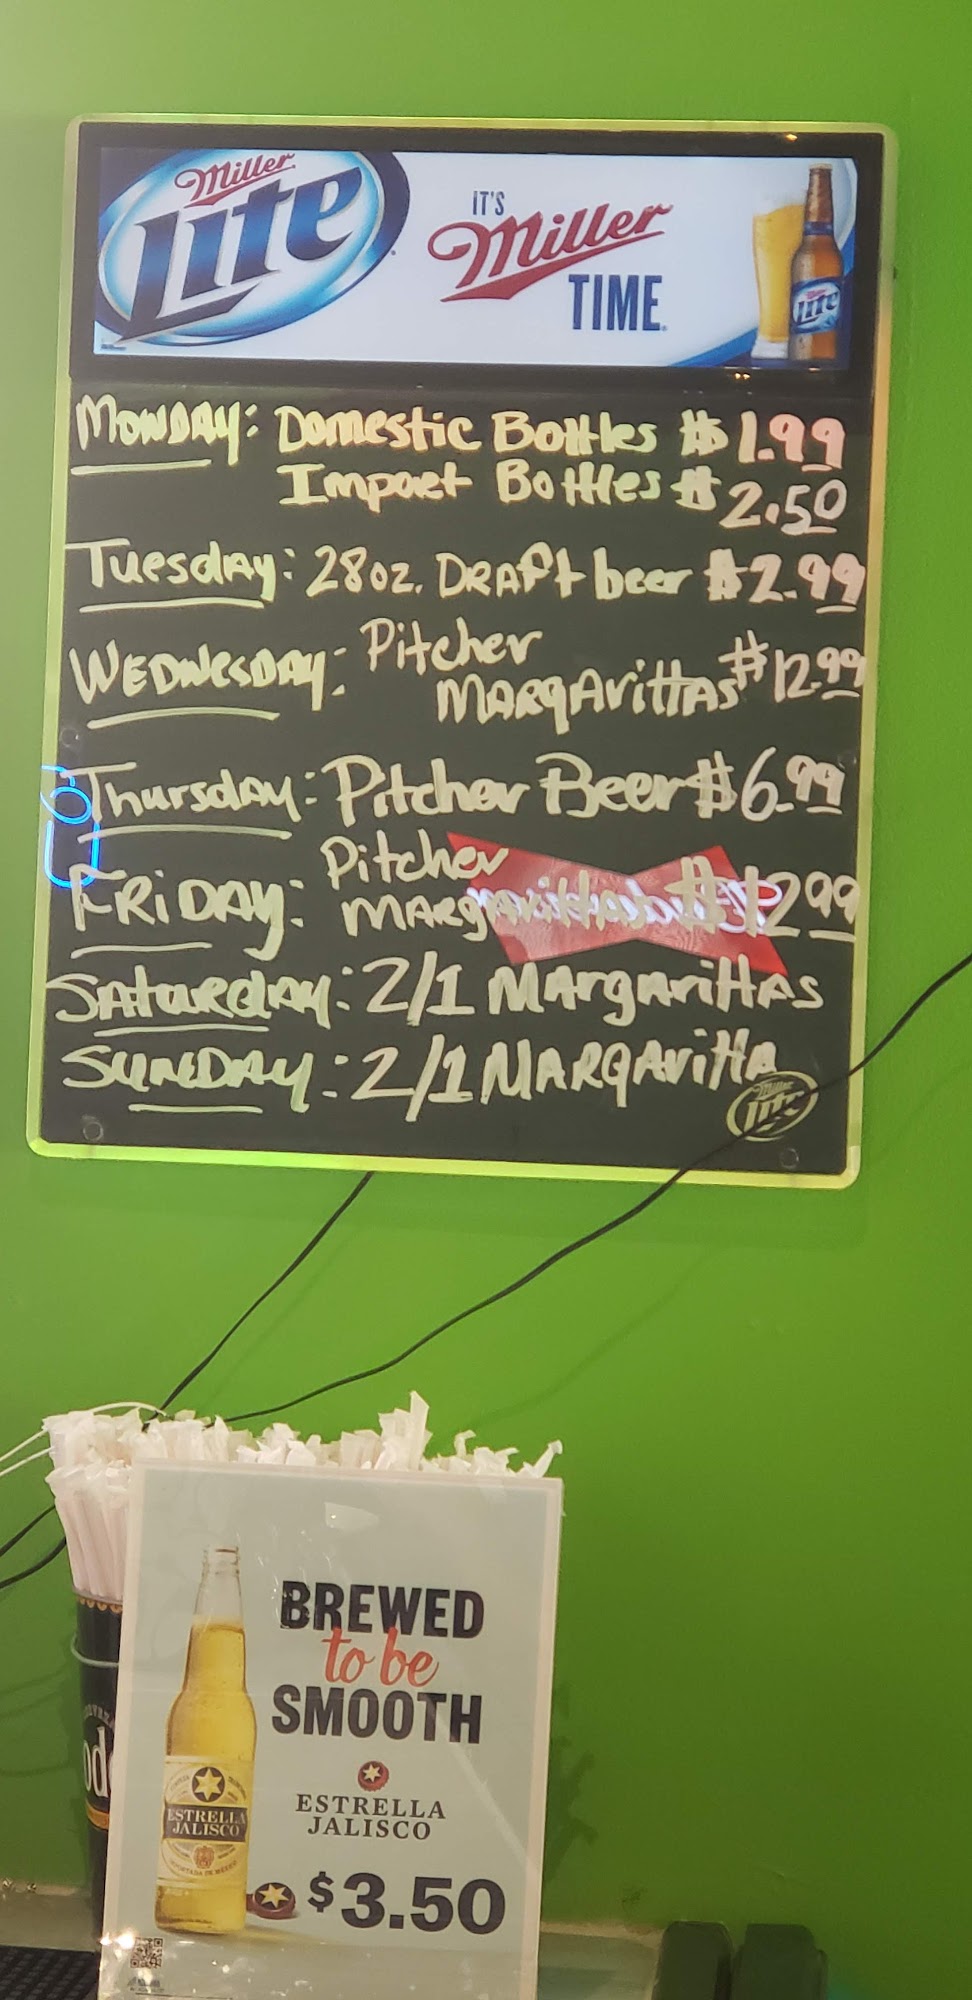 Miller
Lite
IT'S
Miller
TIME
Lite
Monday: Domestic Bottles $1.99
Impoet Bottles $2.50
Tuesday: 28oz. Draft beer $2.99
Wednesday: Pitcher
Margarittas $12.99
Thursday: Pitcher Beer $6.99
Friday: Pitcher
Margarittas $12.99
Saturday: 2/1 Margarittas
Sunday: 2/1 Margaritta
Miller
Lite
BREWED
to be
SMOOTH
ESTRELLA
JALISCO
ESTRELLA
JALISCO
$3.50